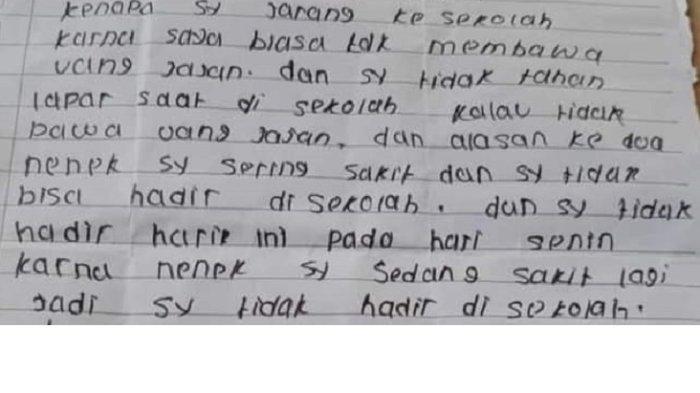 kenapa sy jarang ke sekolah
karna saya biasa tdk membawa
uang jajan. dan sy tidak tahan
lapar saat di sekolah kalau tidak
bawa uang jajan. dan alasan ke dua
nenek sy sering sakit dan sy tidak
bisa hadir di sekolah. dan sy tidak
hadir harie ini pada hari senin
karna nenek sy sedang sakit lagi
jadi sy tidak hadir di sekolah.